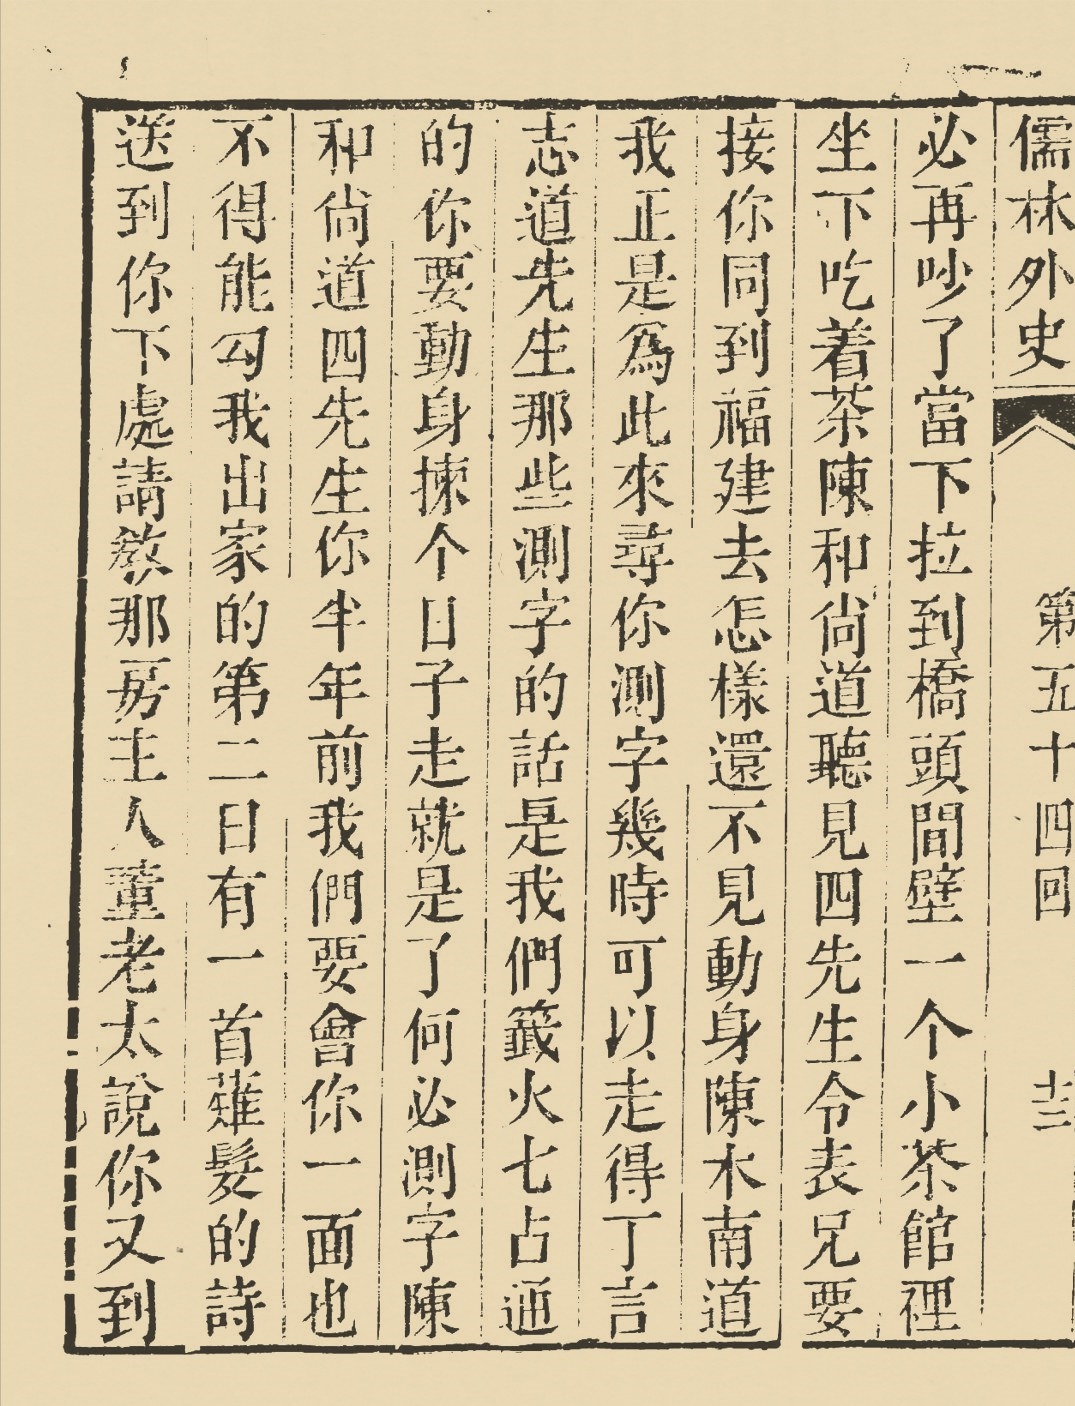 儒林外史 第五十四回 十二
必再吵了當下拉到橋頭間壁一个小茶館裡
坐下吃着茶陳和尙道聽見四先生令表兄要
接你同到福建去怎樣還不見動身陳木南道
我正是爲此來尋你測字幾時可以走得丁言
志道先生那些測字的話是我們籤火七占通
的你要動身揀个日子走就是了何必測字陳
和尙道四先生你半年前我們要會你一面也
不得能勾我出家的第二日有一首薙髮的詩
送到你下處請敎那房主人董老太說你又到